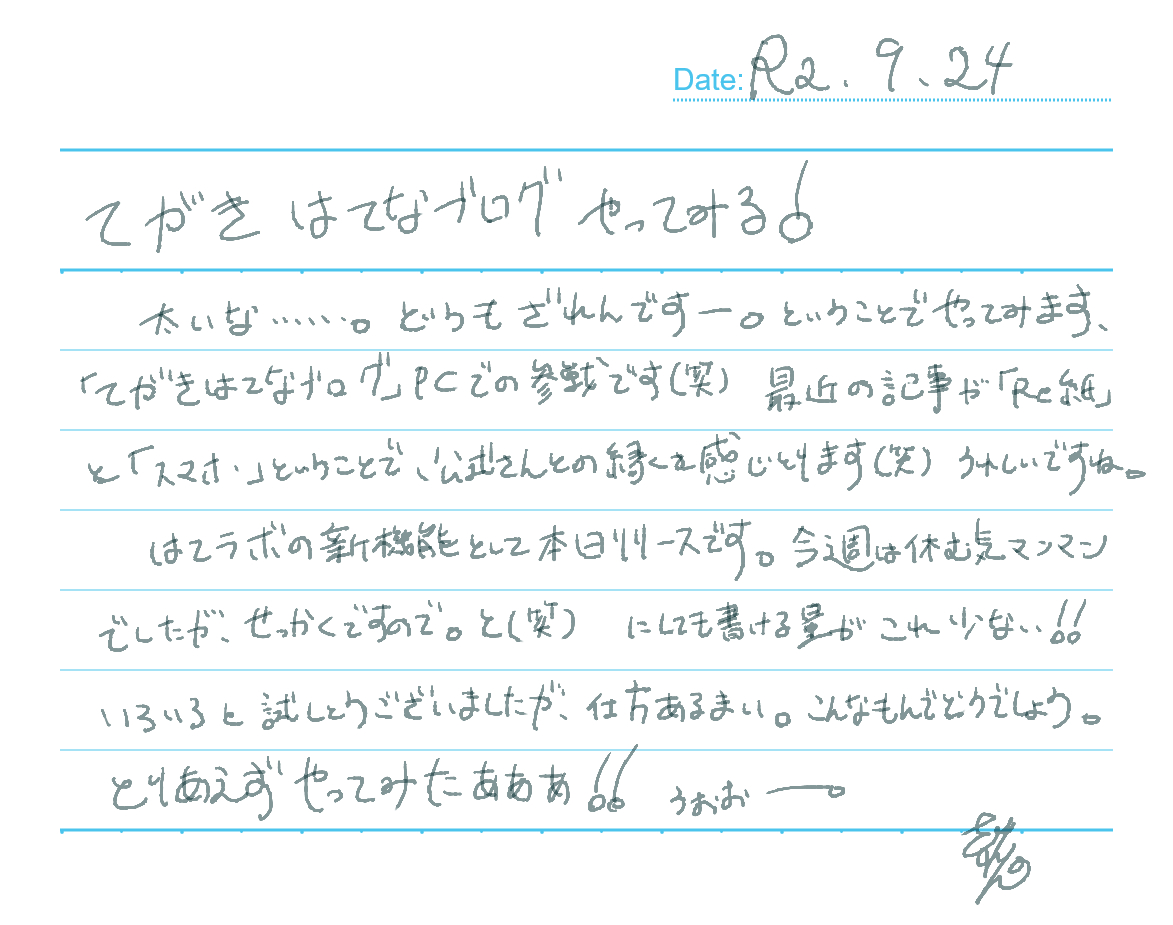 Date: R2.9.24
てがきはてなブログやってみる!
太いな……。どうもざれんですー。ということでやってみます、
「てがきはてなブログ」PCでの参戦です(笑) 最近の記事が「Re紙」
と「スマホ」ということで、公式さんとの縁を感じとります(笑) うれしいですね。
はてラボの新機能として本日リリースです。今週は休む気マンマン
でしたが、せっかくですので。と(笑) にしても書ける量がこれ少ない!!
いろいろと試しとうございましたが、仕方あるまい。こんなもんでどうでしょう。
とりあえずやってみたあああ!! うおおー。